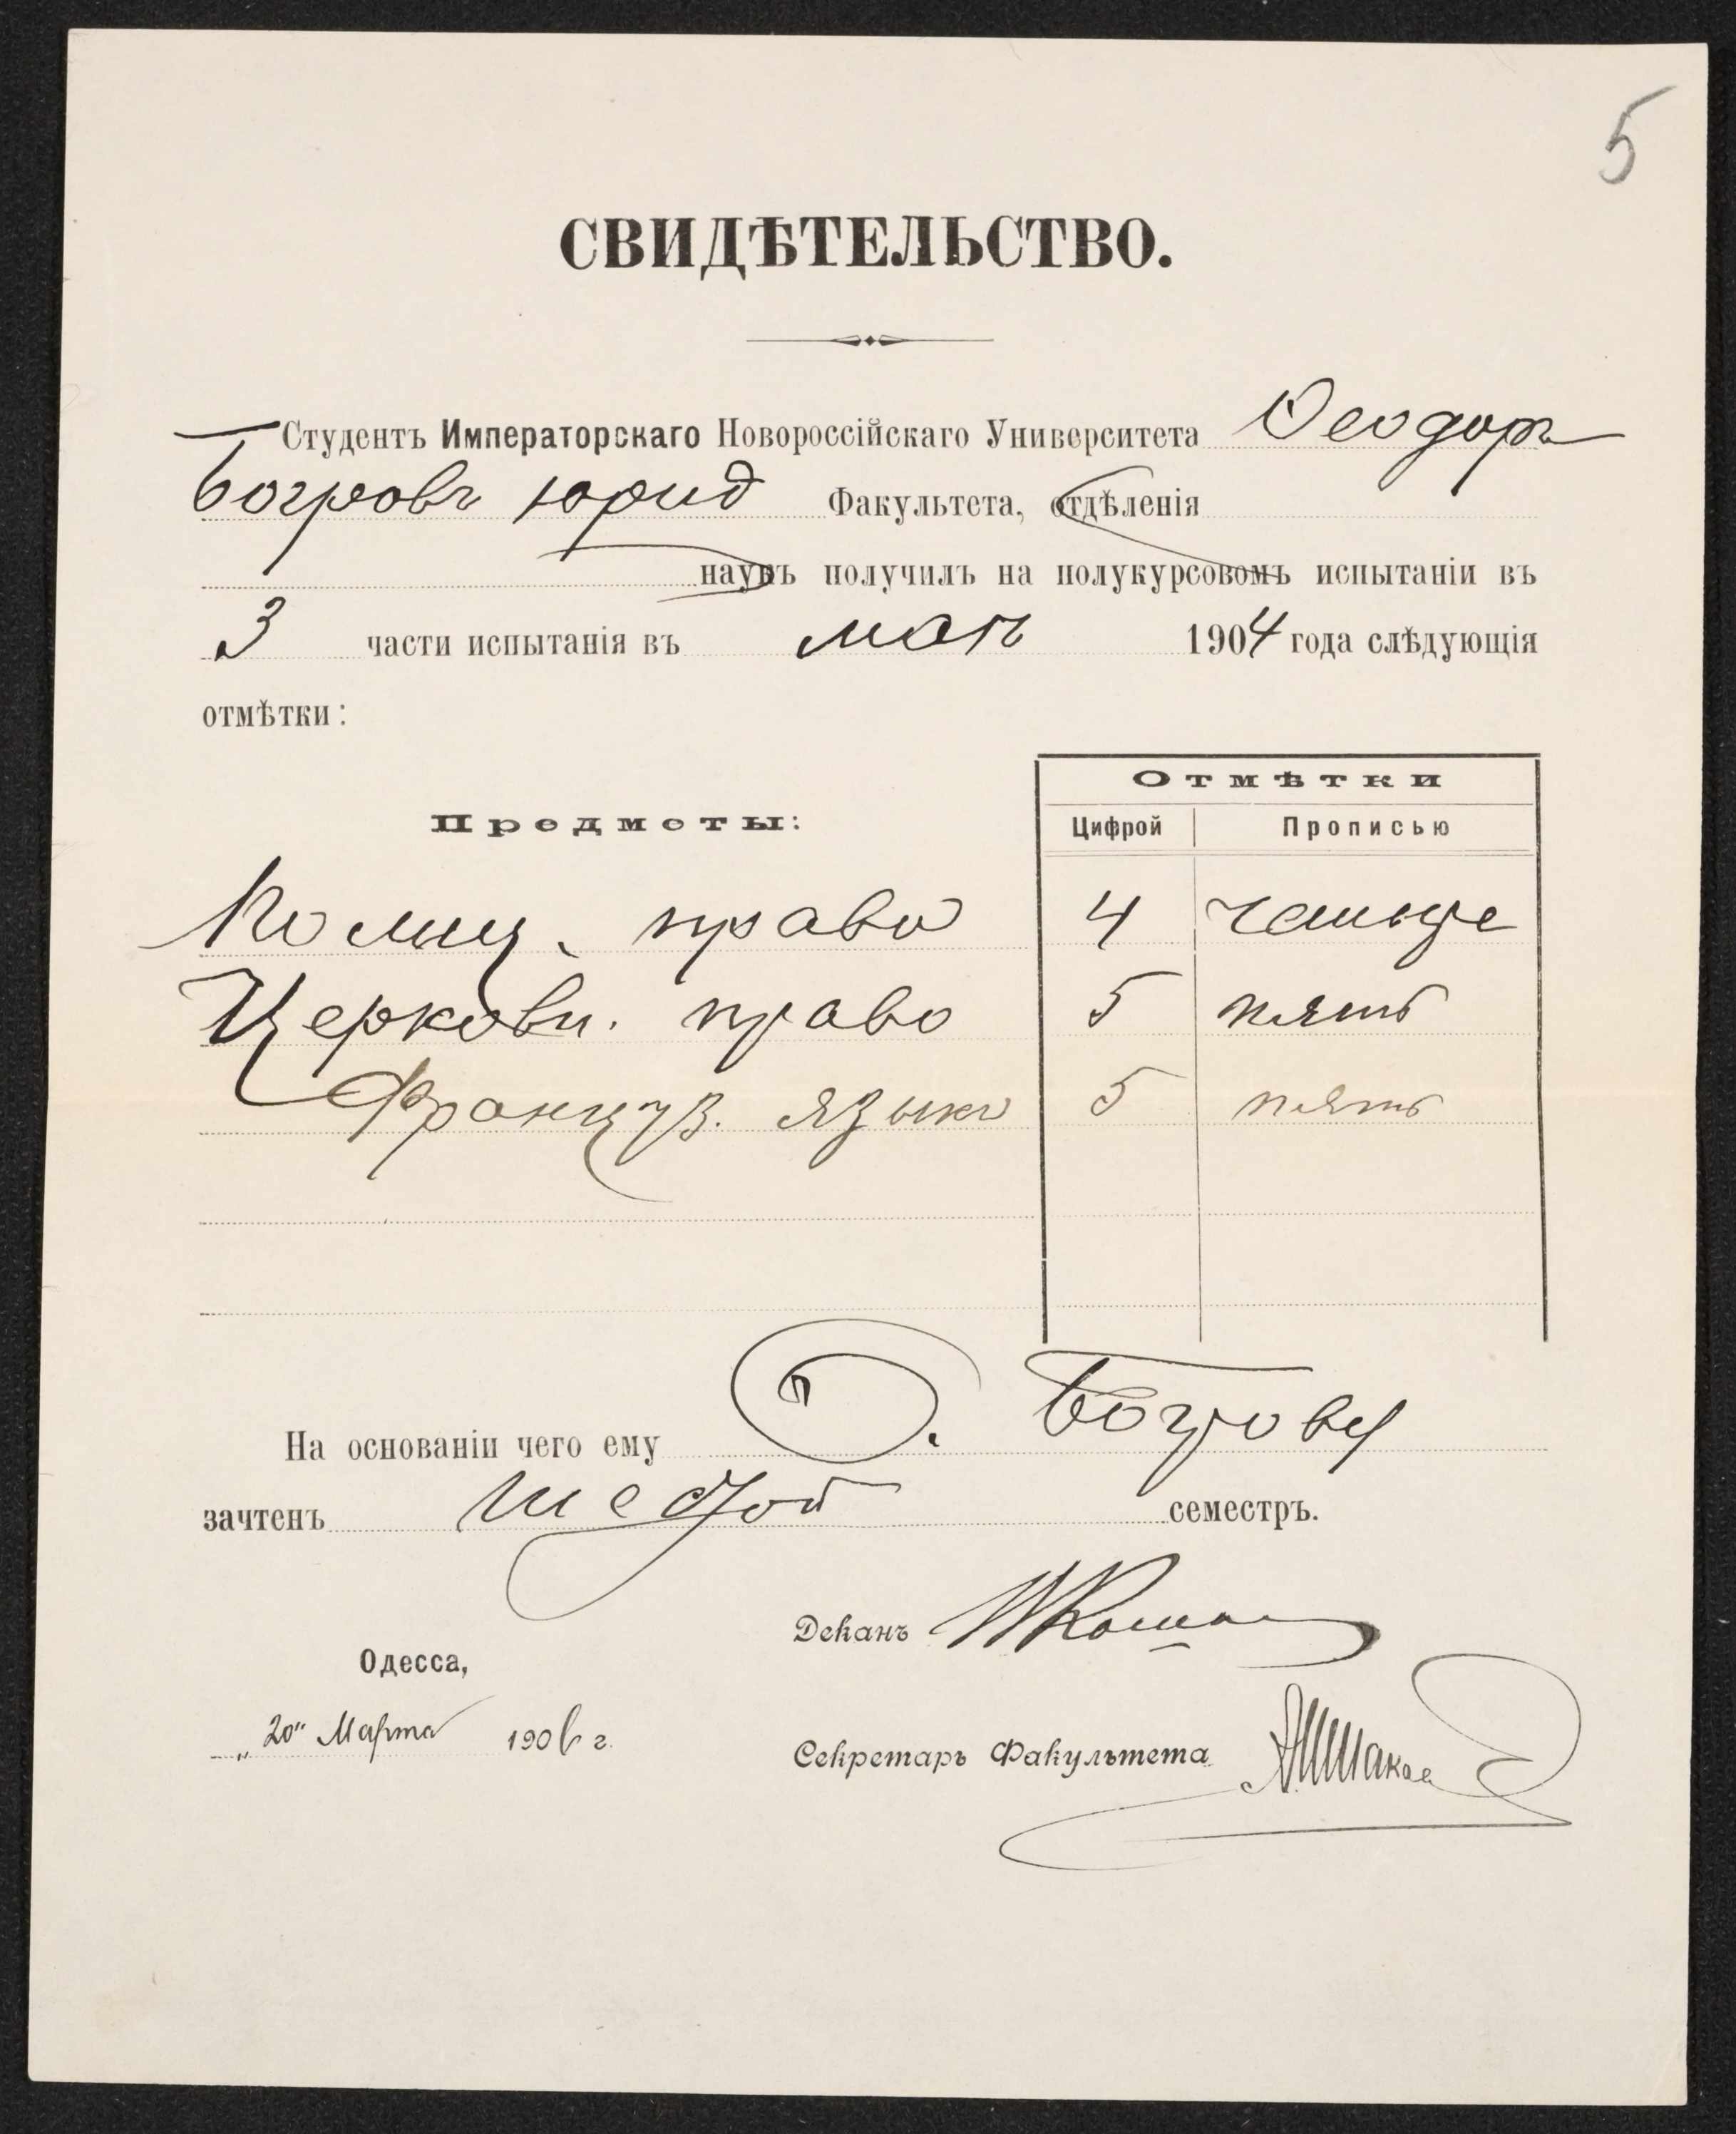 5
СВИДѢТЕЛЬСТВО.
Студентъ Императорскаго Новороссійскаго Университета Ѳеодоръ
Богровъ юрид Факультета, отдѣленія
наукъ получилъ на полукурсовомъ испытаніи въ
3 части испытанія въ маѣ 1904 года слѣдующія
отмѣтки:
Предметы: Отмѣтки
Цифрой Прописью
Полиц. право 4 четыре
Церковн. право 5 пять
Француз. языкъ 5 пять
На основаніи чего ему Ѳ. Богрову
зачтенъ шестой семестръ.
Деканъ
Одесса,
„20" Марта 1906 г.
Секретарь Факультета